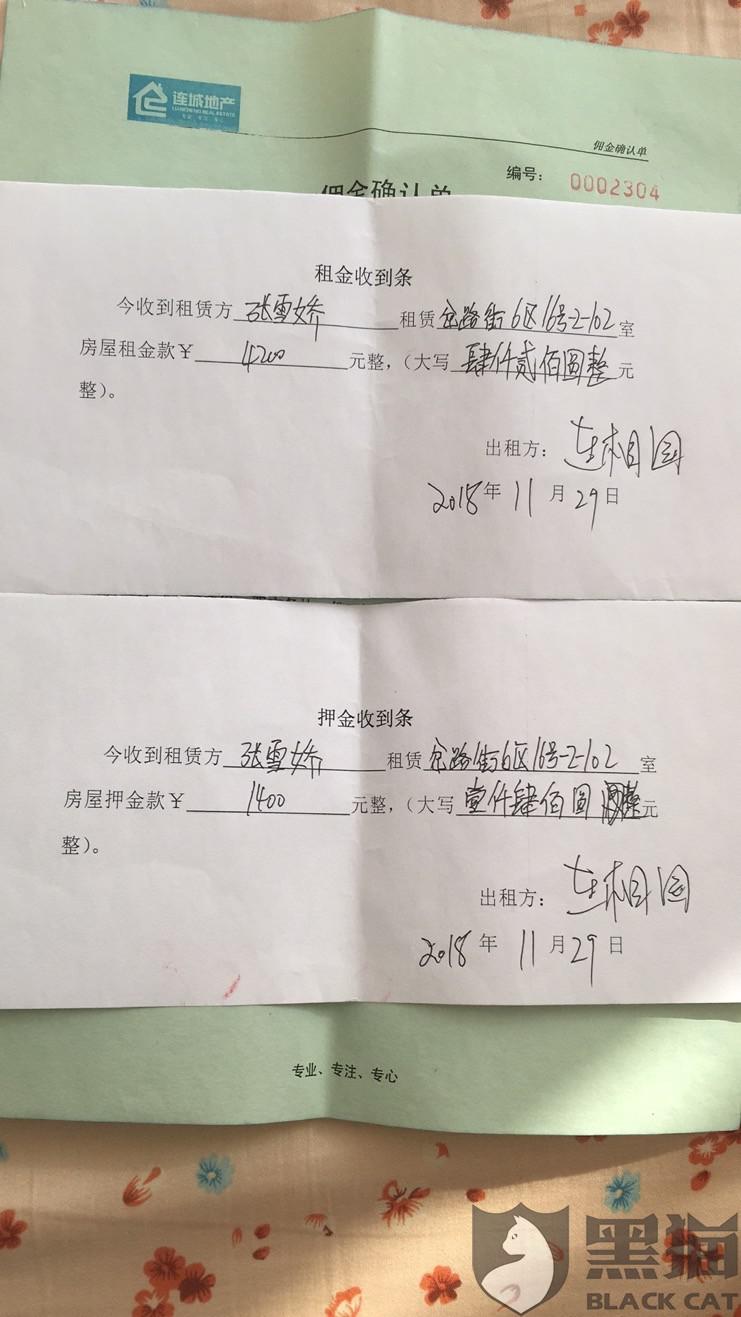 连城地产
LIANCHENG REAL ESTATE
专业 专注 专心
佣金确认单
编号： 0002304
佣金确认单
租金收到条
今收到租赁方 张雪娇 租赁 岔路街6区16号-2-102 室
房屋租金款￥ 4200 元整，（大写 肆仟贰佰圆整 元
整）。
出租方： 连相国
2018 年 11 月 29 日
押金收到条
今收到租赁方 张雪娇 租赁 岔路街6区16号-2-102 室
房屋押金款￥ 1400 元整，（大写 壹仟肆佰圆 整元
整）。
出租方： 连相国
2018 年 11 月 29 日
专业、专注、专心
黑猫
BLACK CAT